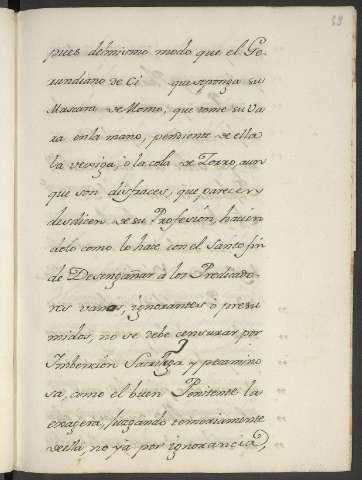 59
pues delmismo modo que el Ge-
rundiano de Ci que seponga su
Mascara de Momo; que tome su Va
ra en la mano, pendiente de ella
la vexiga, o la cola de Zorro, aun
que son disfraces, que parecen
desdicen de su Profesión, hacien
dolo como lo hace con el Santo fin
de Desengañar à los Predicado-
res vanos, ignorantes ò presu
midos, no se debe censurar por
Imbención Sacrilega y pecamino
sa, como el buen Penitente la
exagera, juzgando temerariamente
de ella, no ya por ignorancia,